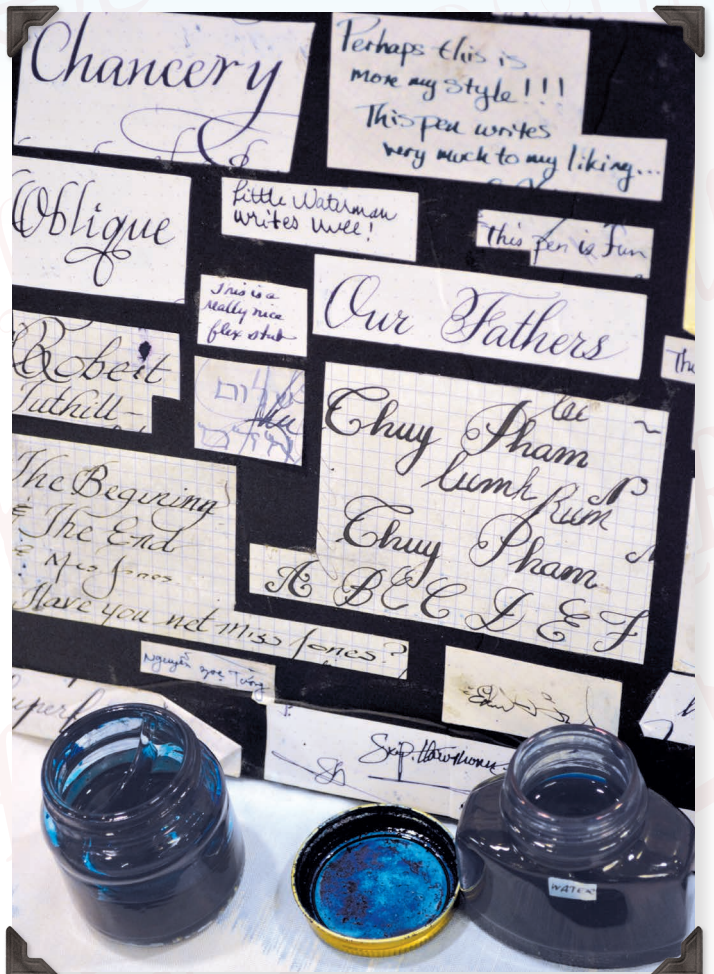 Chancery
Perhaps this is
more my style!!!
This pen writes
very much to my liking...
Oblique
Little Waterman
writes well!
This pen is Fun
This is a
really nice
flex stub
Our Fathers
Robert
Tuthill
Thuy Pham
Thuy Pham
A B C D E F
The Begining
& The End
& Mrs Jones
Have you net miss Jones?
Nguyễn
Skip Hawthorne
WATER